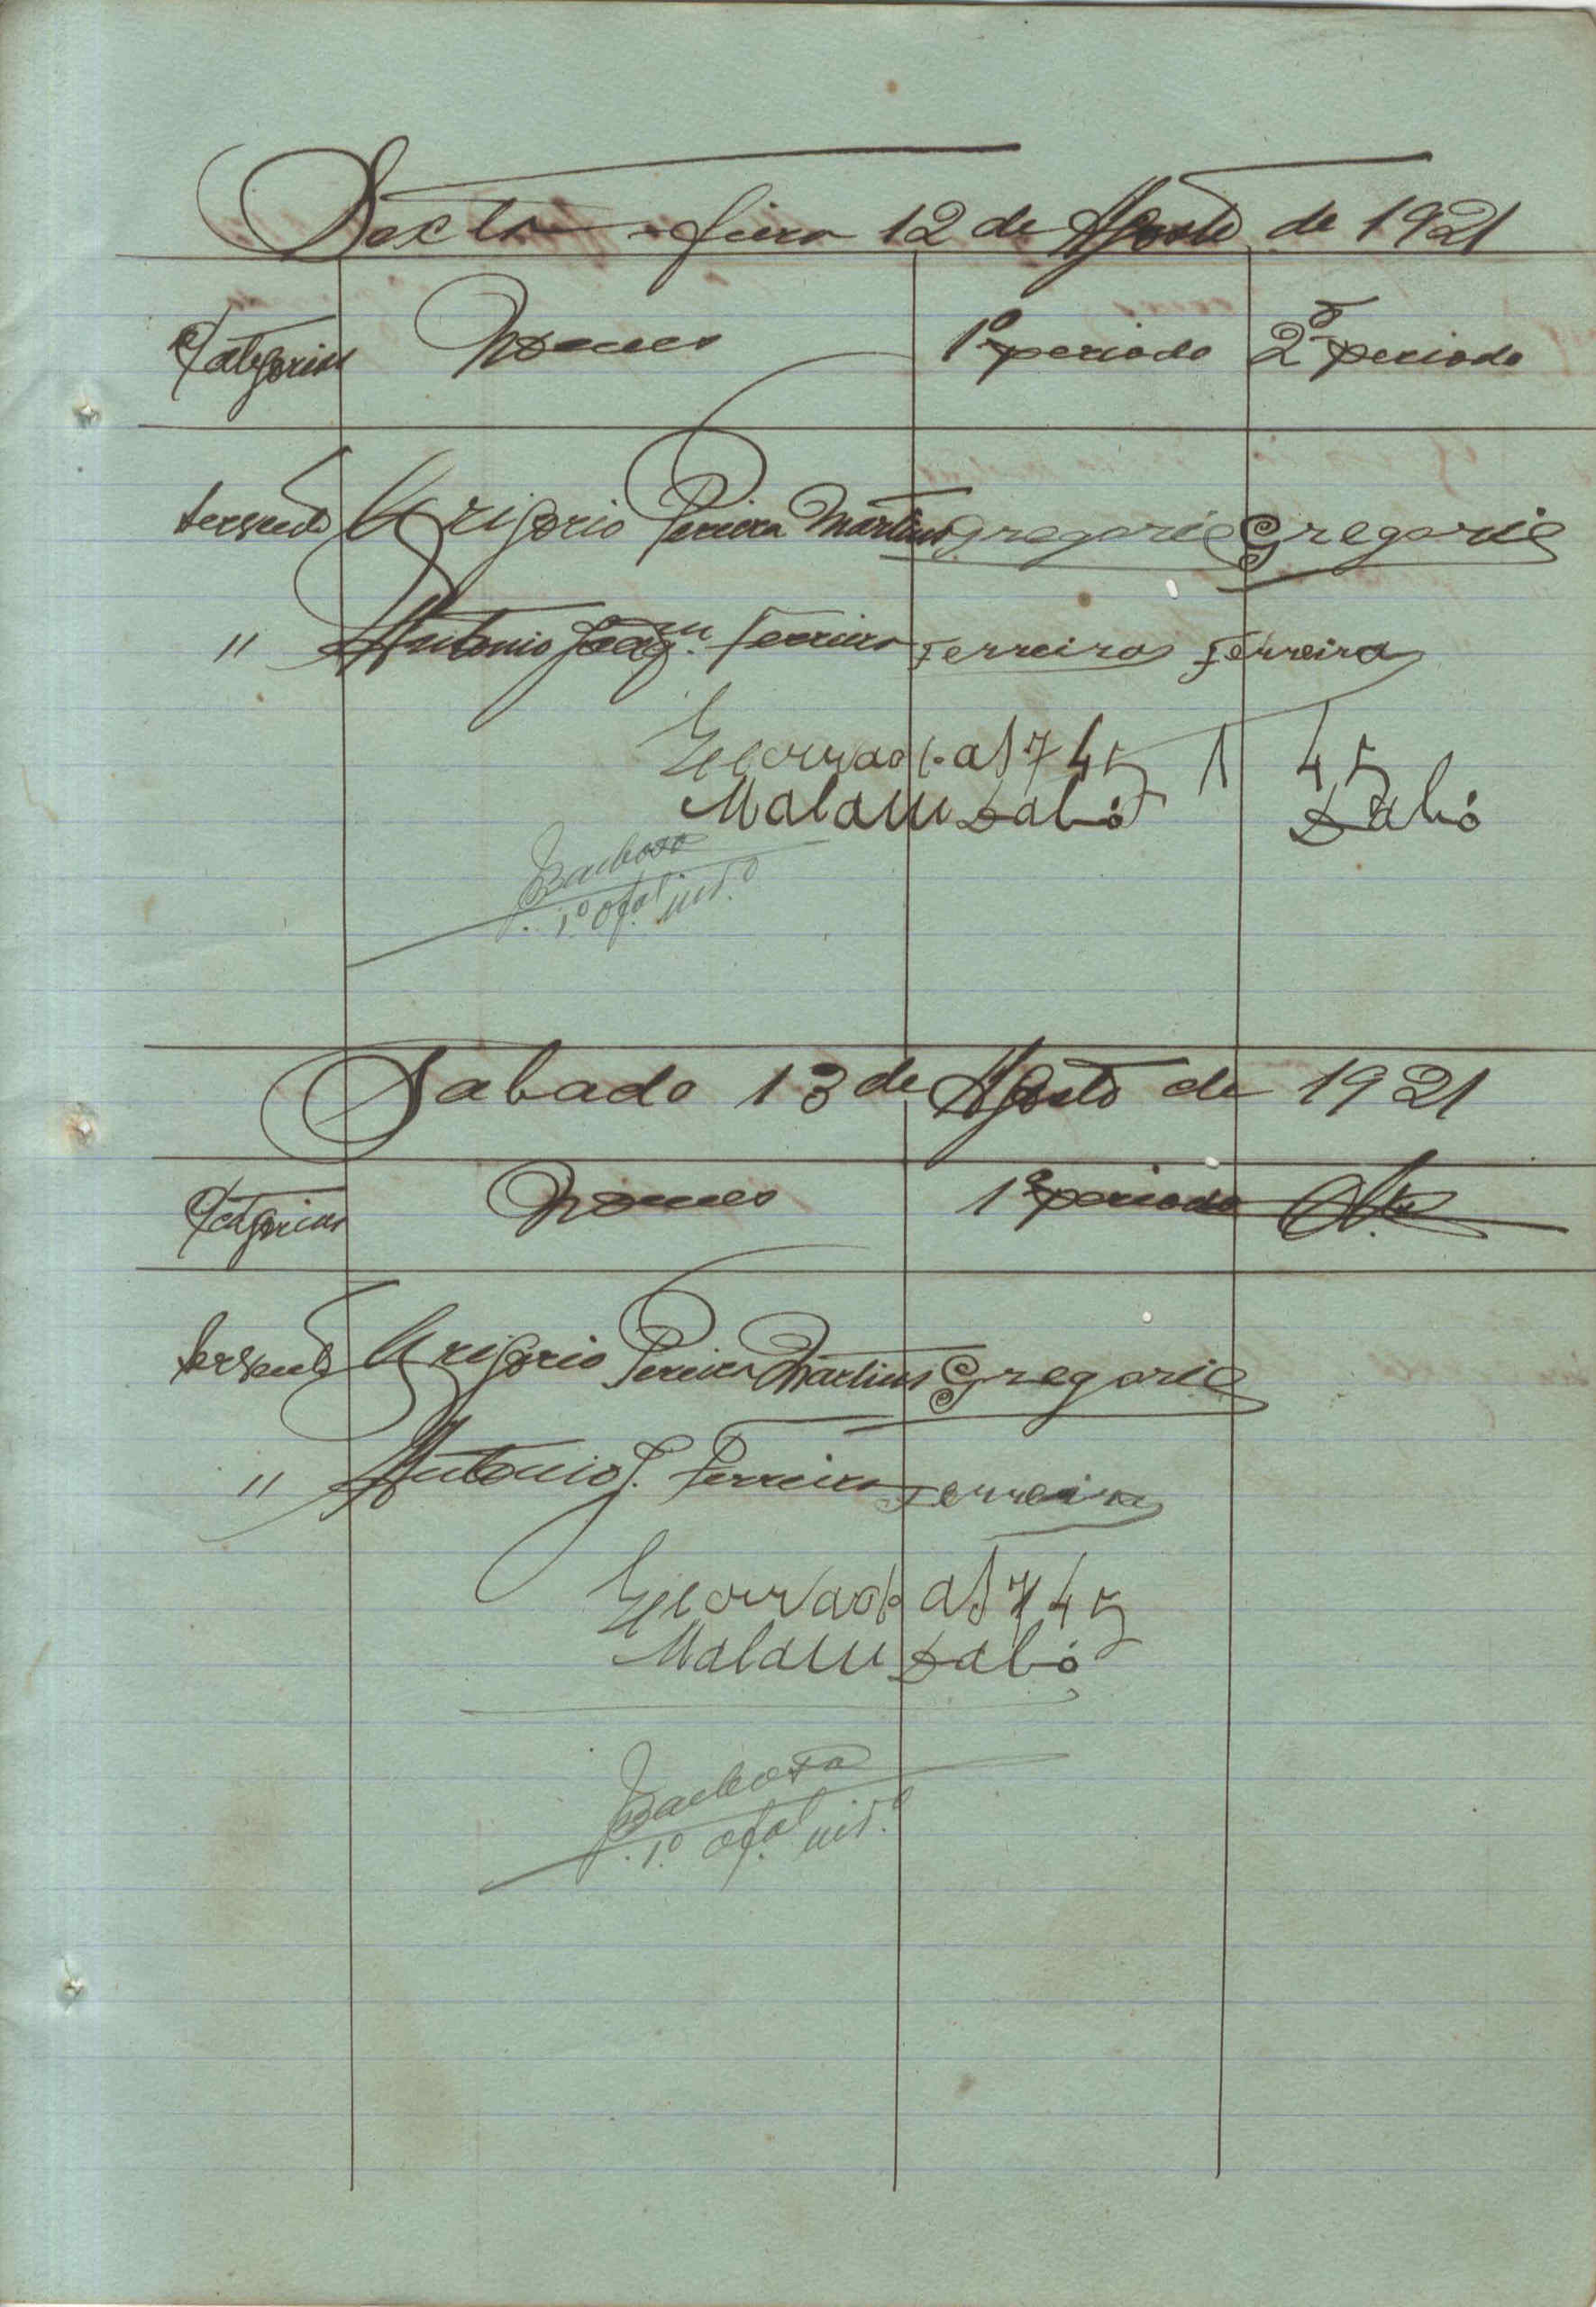 Sexta-feira 12 de Agosto de 1921
Categorias Nomes 1º periodo 2º periodo
Servente Grigorio Pereira Martins Gregorio Gregorio
" Antonio Joaqm. Ferreira Ferreira Ferreira
Encerrado as 7 45 1 45
Malam Dabó Dabó
Barbosa
1º Ofal. intº
Sabado 13 de Agosto de 1921
Categorias Nomes 1º periodo
Servente Grigorio Pereira Martins Gregorio
" Antonio J. Ferreira Ferreira
Encerrado as 7 45
Malam Dabó
Barbosa
1º Ofal. intº